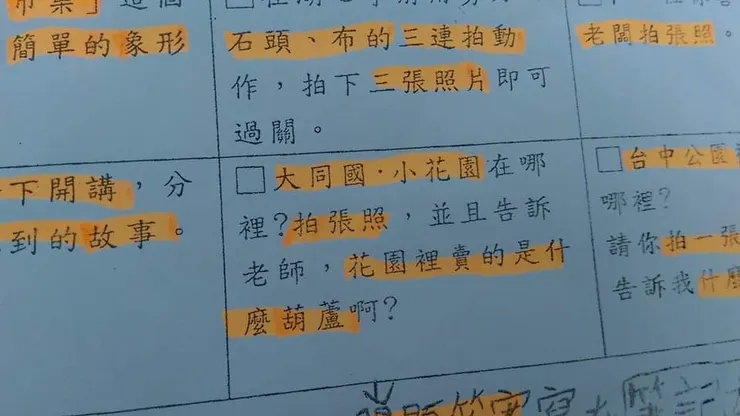 市集」這個
簡單的象形
石頭、布的三連拍動
作，拍下三張照片即可
過關。
老闆拍張照。
下開講，分
到的故事。
□大同國·小花園在哪
裡?拍張照，並且告訴
老師，花園裡賣的是什
麼葫蘆啊?
□台中公園
哪裡?
請你拍一張
告訴我什麼